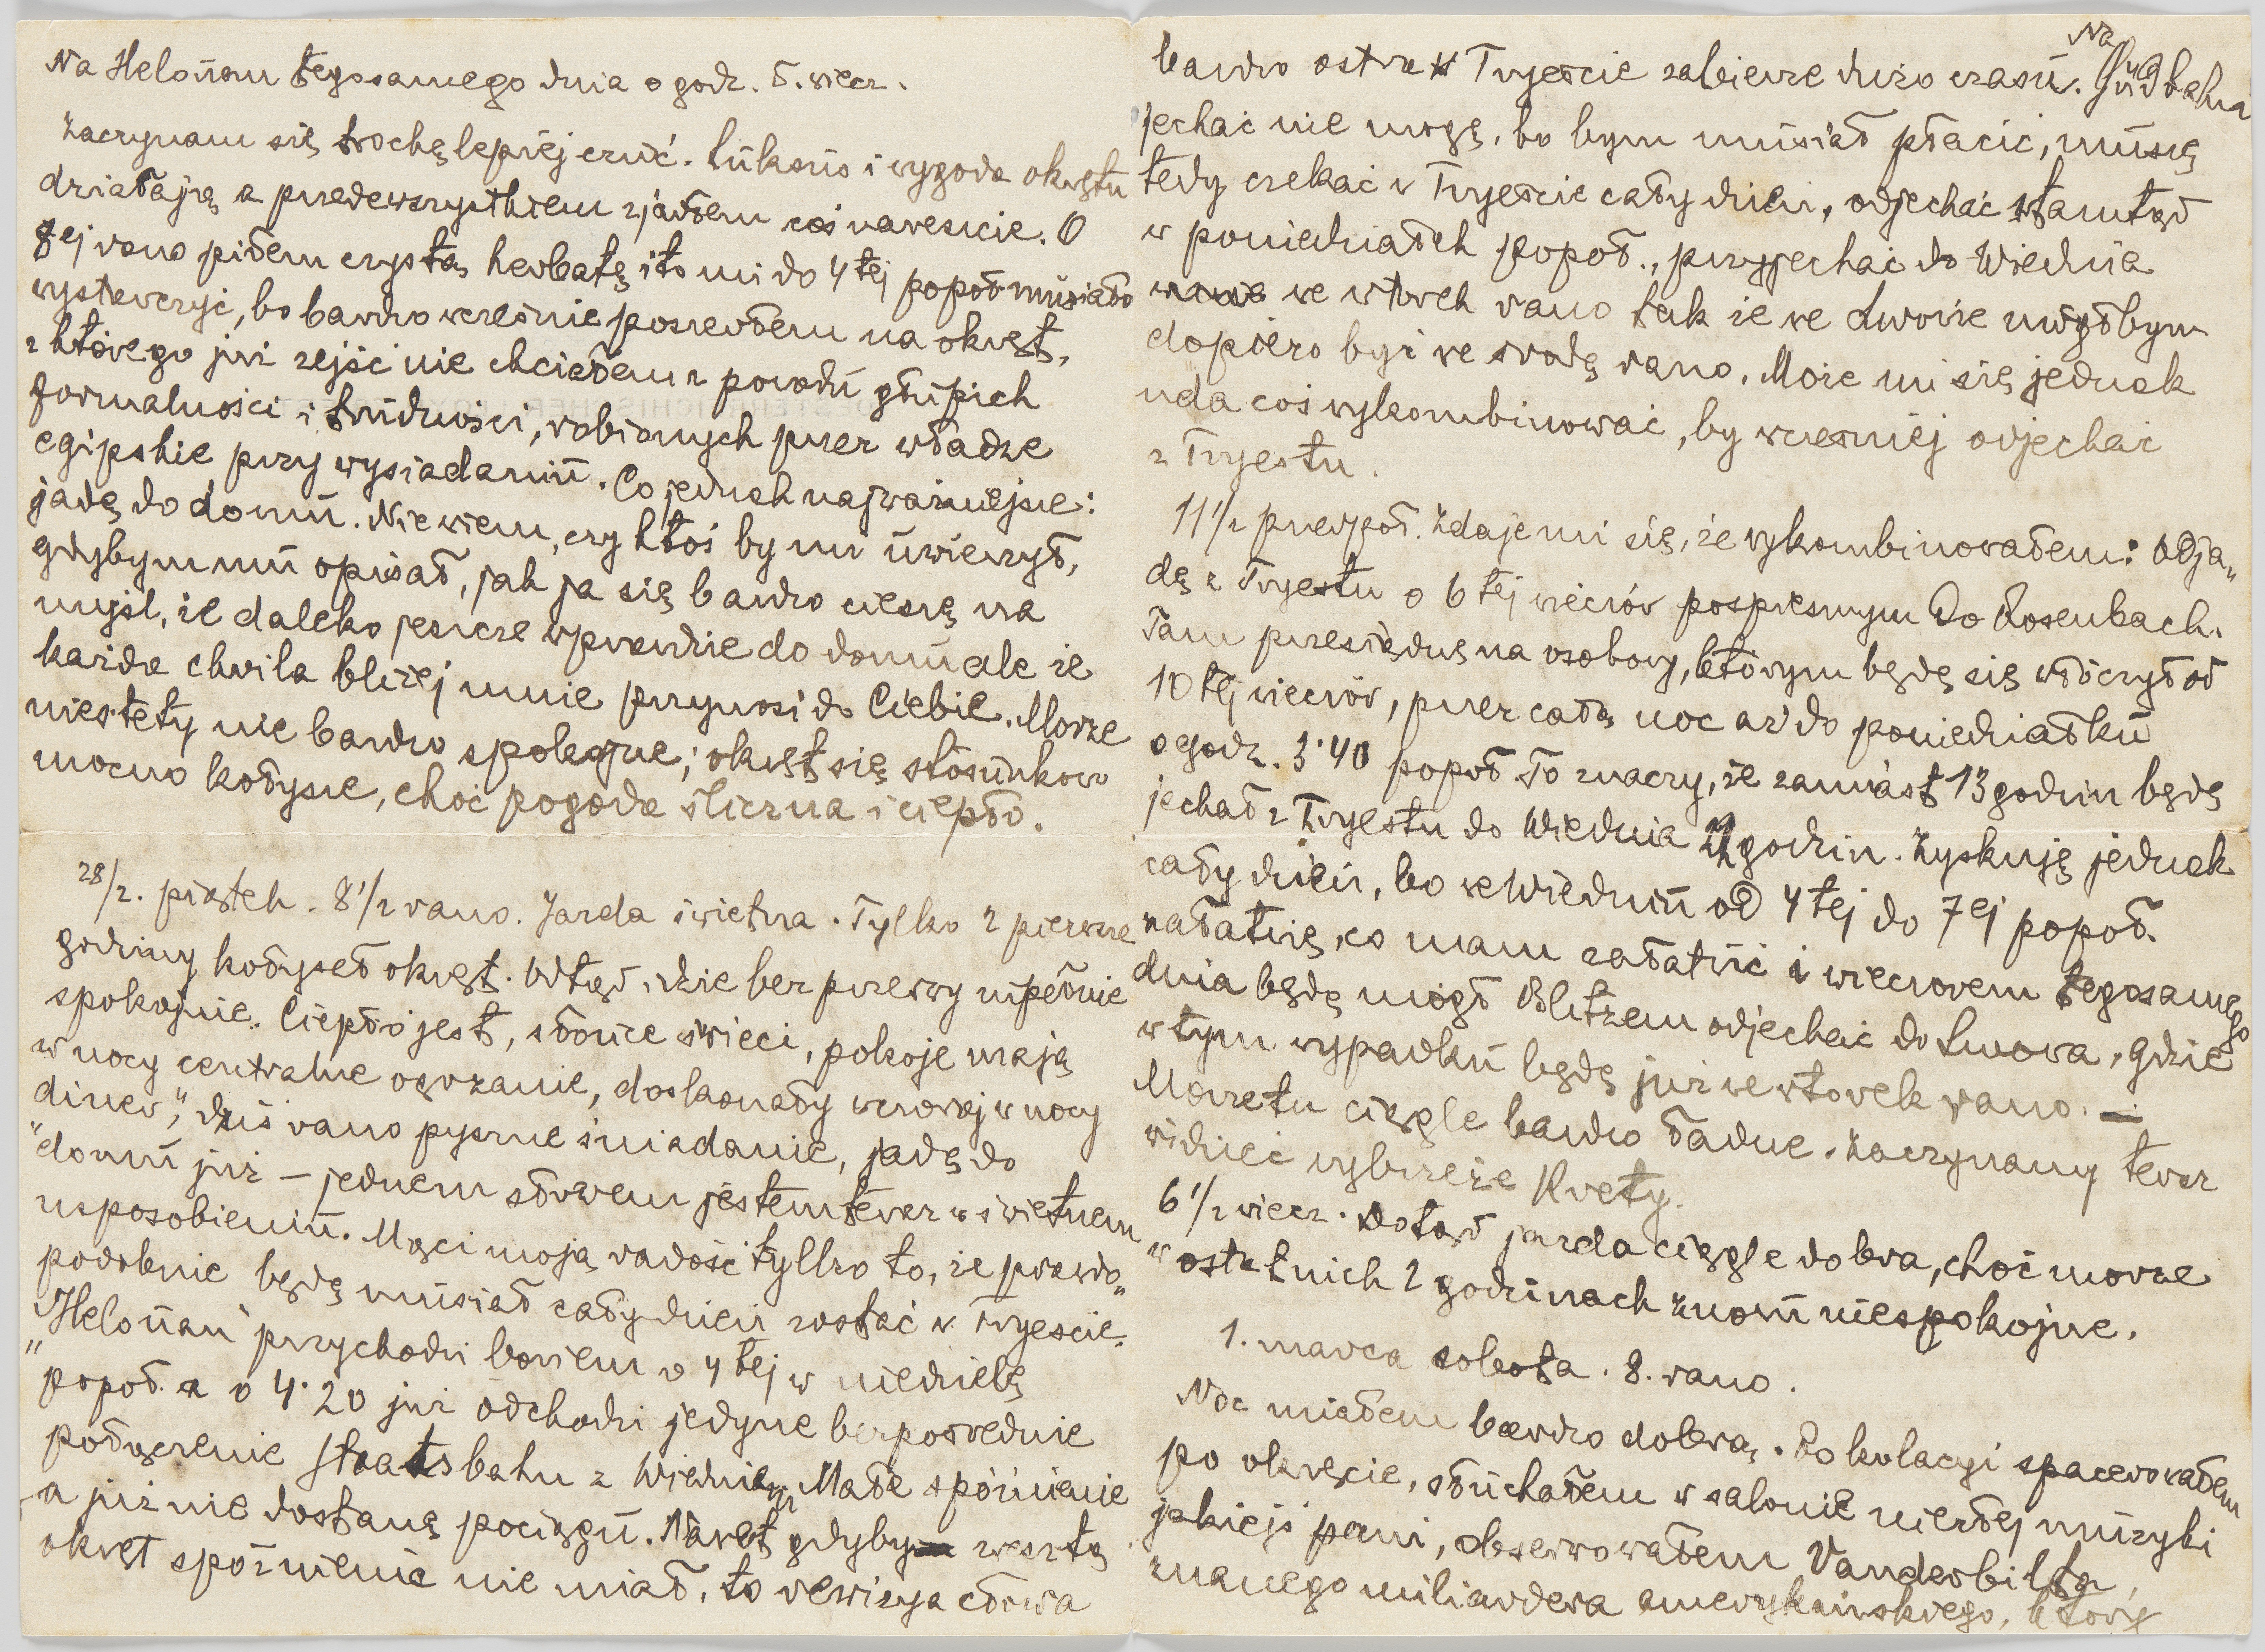 Na Helouan tegosamego dnia o godz. 5. wiecz.
Zaczynam się trochę lepiej czuć. Luksus i wygoda okrętu
działają a przedewszystkiem zjadłem coś nareszcie. O
8ej rano piłem czystą herbatę i to mi do 4tej popoł musiało
wystarczyć, bo bardzo wcześnie poszedłem na okręt,
z którego już zejść nie chciałem z powodu głupich
formalności i trudności, robionych przez władze
egipskie przy wysiadaniu. Co jednak najważniejsze:
jadę do domu. Nie wiem, czy ktoś by mi uwierzył,
gdybym mu opisał, jak ja się bardzo cieszę na
myśl, że daleko jeszcze wprawdzie do domu ale że
każda chwila bliżej mnie przynosi do Ciebie. Morze
niestety nie bardzo spokojne; okręt się stosunkowo
mocno kołysze, choć pogoda śliczna i ciepło.
28/2. piątek. 8 1/2 rano. Jazda świetna. Tylko 2 pierwsze
godziny kołysał okręt. Odtąd idzie bez przerwy zupełnie
spokojnie. Ciepło jest, słońce świeci, pokoje mają
w nocy centralne ogrzanie, doskonały wczoraj w nocy
diner", dziś rano pyszne śniadanie, jadę do
"domu już – jednem słowem jestem teraz w świetnem
usposobieniu. Mąci moją radość tylko to, że prawdo"
podobnie będę musiał cały dzień zostać w Tryescie.
"Helouan" przychodzi bowiem o 4tej w niedzielę
popoł. a o 4·20 już odchodzi jedyne bezpośrednie
połączenie Staatsbahn z Wiedniem. Małe spóźnienie
a już nie dostanę pociągu. Nawet gdyby zresztą
okręt spóźnienia nie miał, to rewizya cłowa
bardzo ostra w Tryeście zabierze dużo czasu. Na Südbahn
jechać nie mogę, bo bym musiał płacić, muszę
tedy czekać w Tryeście cały dzień, odjechać stamtąd
w poniedziałek popoł., przyjechać do Wiednia
we wtorek rano tak że we Lwowie mógłbym
dopiero być we środę rano. Może mi się jednak
uda coś wykombinować, by wcześniej odjechać
z Tryestu.
11 1/2 przedpoł. Zdaje mi się, że wykombinowałem: odja"
dę z Tryestu o 6tej wieczór pospiesznym do Rosenbach.
Tam przesiądę na osobowy, którym będę się włóczył od
10tej wieczór, przez całą noc aż do poniedziałku
o godz. 3·40 popoł To znaczy, że zamiast 13 godzin będę
jechał z Tryestu do Wiednia 22 godzin. Zyskuję jednak
cały dzień, bo we Wiedniu od 4tej do 7ej popoł.
załatwię, co mam załatwić i wieczorem tegosamego
dnia będę mógł Blitzem odjechać do Lwowa, gdzie
w tym wypadku będę już we wtorek rano. —
Morze tu ciągle bardzo ładne. Zaczynamy teraz
widzieć wybrzeże Krety.
6 1/2 wiecz. Dotąd jazda ciągle dobra, choć morze
w ostatnich 2 godzinach znowu niespokojne.
1. marca sobota. 8. rano.
Noc miałem bardzo dobrą. Po kolacyi spacerowałem
po okręcie, słuchałem w salonie niezłej muzyki
jakiejś pani, obserwowałem Vanderbilta,
znanego miliardera amerykańskiego, który